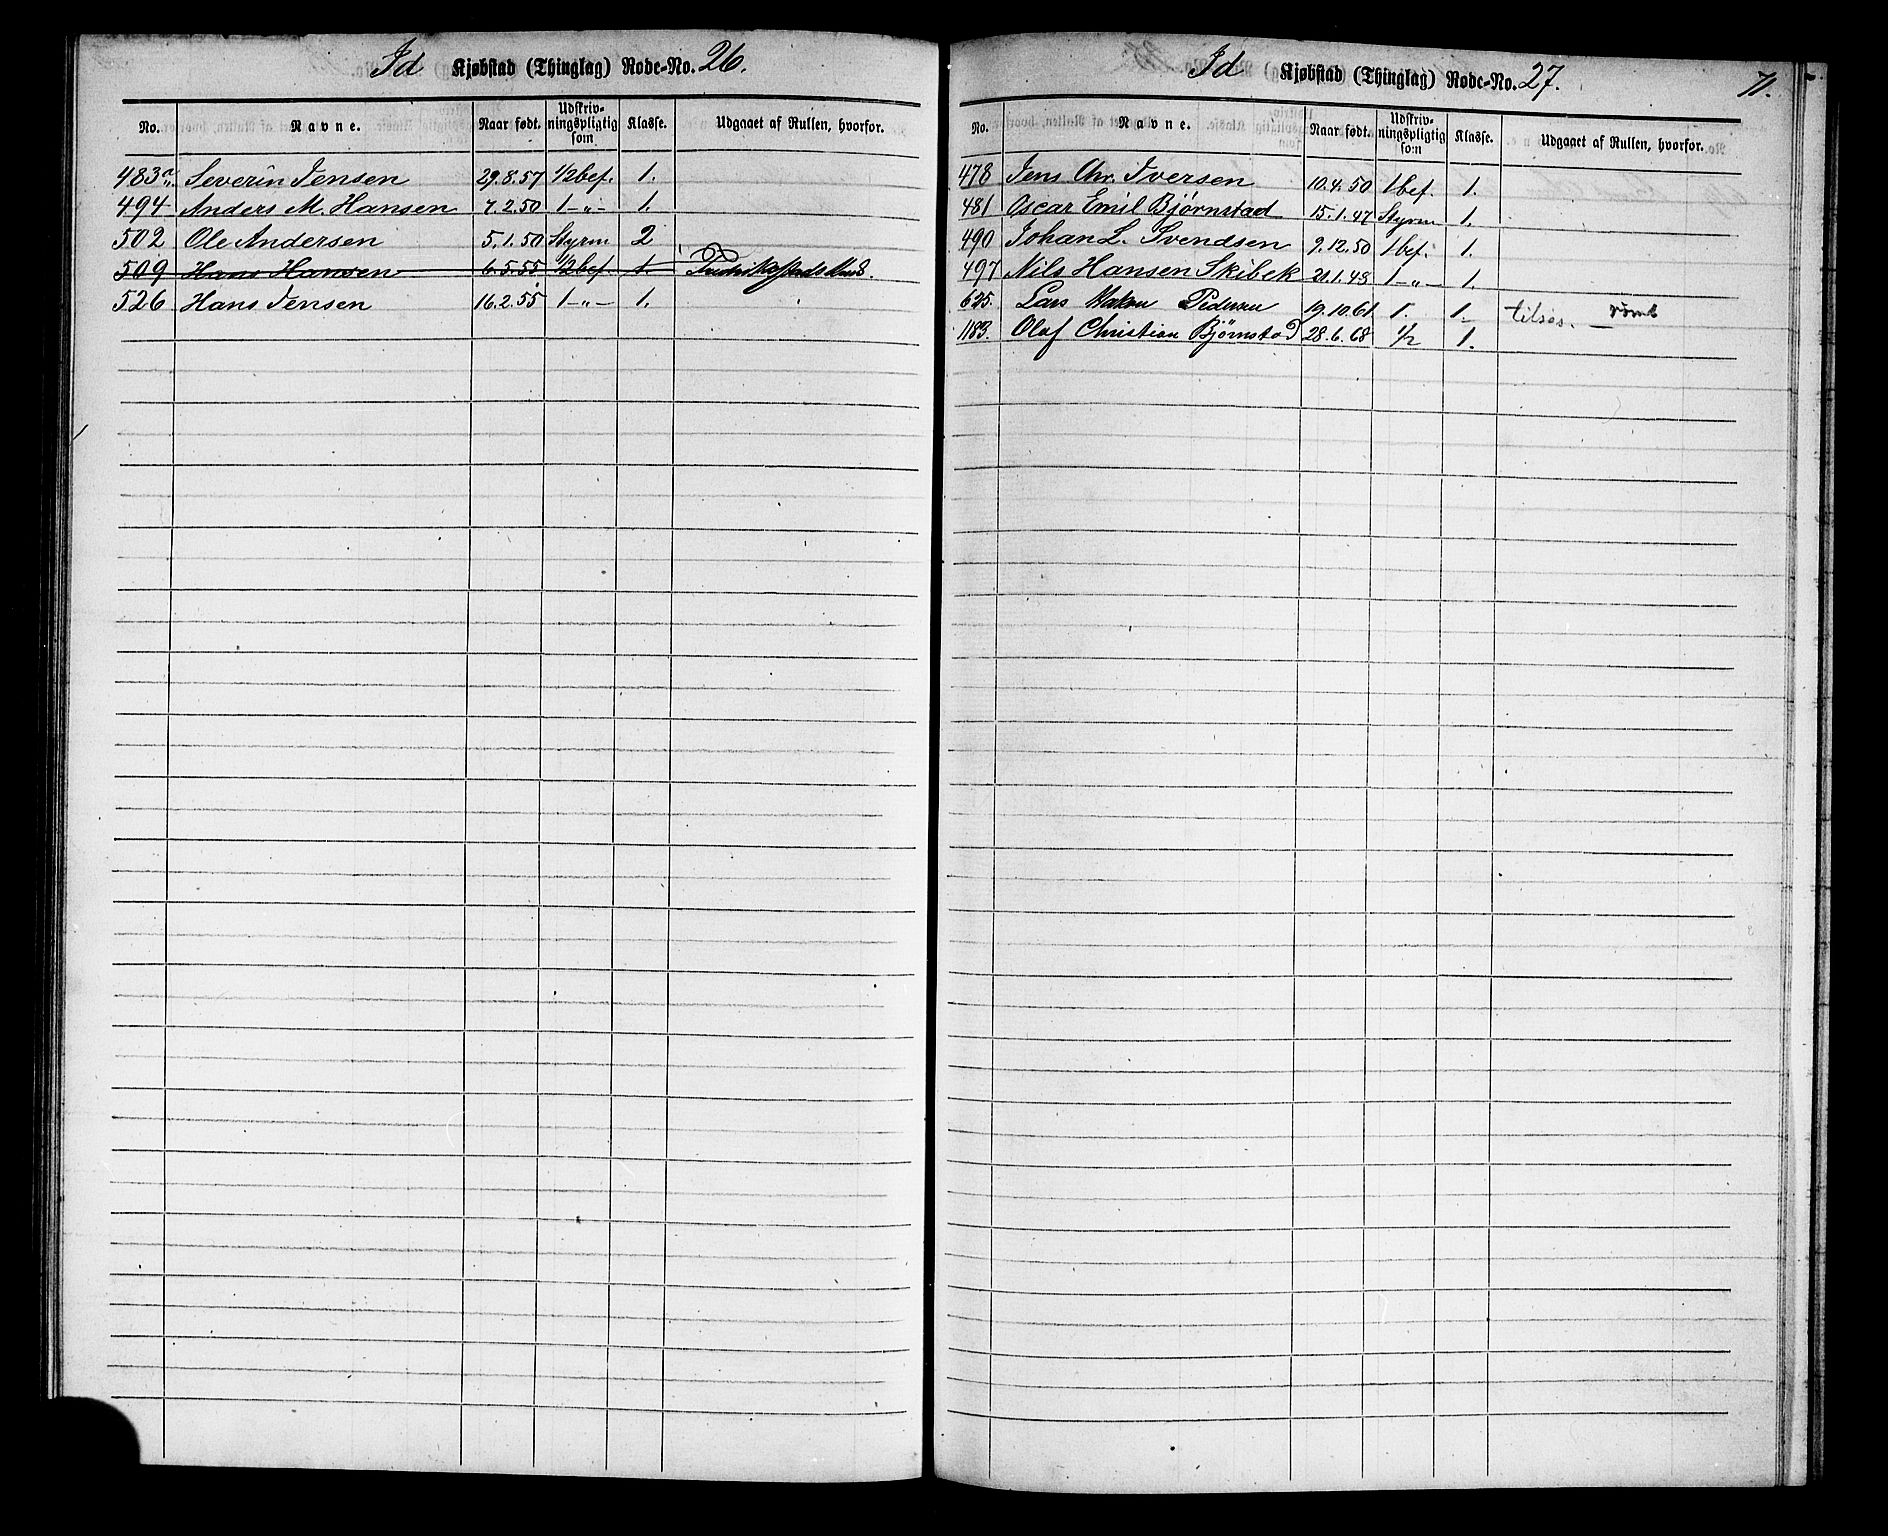 Id Kjøbstad (Thinglag) Rode-No. 26.
No. Navne. Naar født. Udskriv-ningspligtig som Klasse. Udgaaet af Rullen, hvorfor.
483a Severin Jensen 29.8.57 1/2 bef. 1.
494 Anders M. Hansen 7.2.50 1 -„- 1.
502 Ole Andersen 5.1.50 Styrm 2
509 Hans Hansen 6.5.55 1/2 bef. 1.
526 Hans Jensen 16.2.55 1 -„- 1.
Id Kjøbstad (Thinglag) Rode-No. 27. 71.
No. Navne. Naar født. Udskriv-ningspligtig som Klasse. Udgaaet af Rullen, hvorfor.
478 Jens Chr. Iversen 10.4.50 1 bef. 1.
481 Oscar Emil Bjørnstad 15.1.47 Styrm 1.
490 Johan L. Svendsen 9.12.50 1 bef. 1.
497 Nils Hansen Skibek 21.1.48 1 -„- 1.
625. Lars Pedersen 19.10.61 1. 1. tilsøs.
1183. Olaf Christian Bjørnstad 28.6.68 1/2 1.